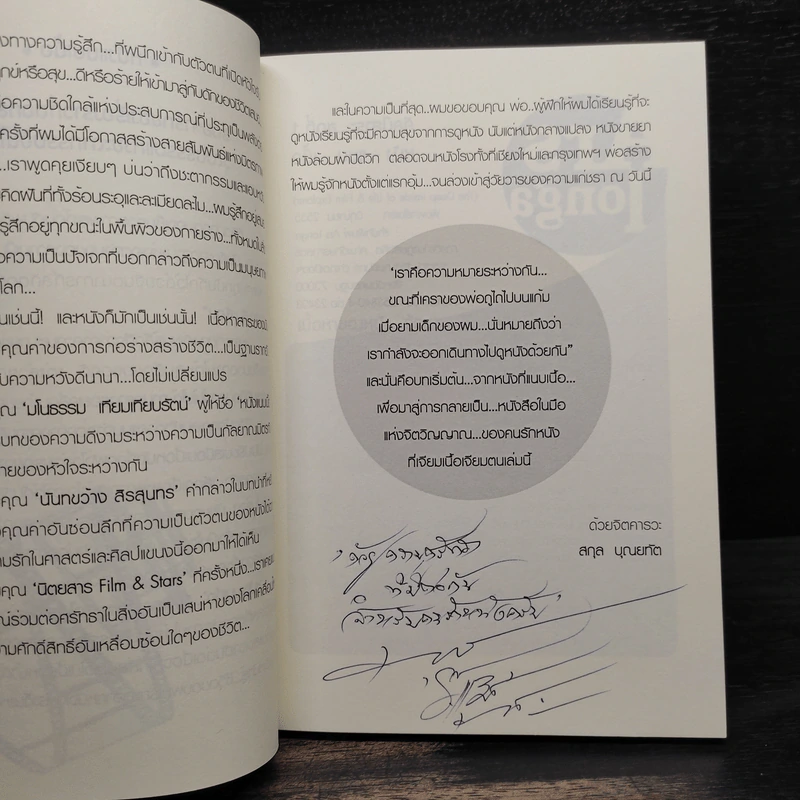 งทางความรู้สึก...ที่ผนึกเข้ากับตัวตนที่เปิดหัวใจรับ
ุกข์หรือสุข...ดีหรือร้ายให้เข้ามาสู่กับดักของชีวิตเสมอ
อความชิดใกล้แห่งประสบการณ์ที่ประทุเป็นพลัง
ครั้งที่ผมได้มีโอกาสสร้างสายสัมพันธ์แห่งมิตรภาพ
...เราพูดคุยเงียบๆ บ่นว่าถึงชะตากรรมและแอบหวัง
คิดฝันที่ทั้งร้อนระอุและละเมียดละไม...ผมรู้สึกอยู่เสมอ
รู้สึกอยู่ทุกขณะในพื้นผิวของกายร่าง...ทั้งหมดในทั้ง
งความเป็นปัจเจกที่บอกกล่าวถึงความเป็นมนุษย์
โลก...
นเช่นนี้! และหนังก็มักเป็นเช่นนั้น! เนื้อหาสาระของ
คุณค่าของการก่อร่างสร้างชีวิต...เป็นฐานราก
ับความหวังดีนานา...โดยไม่เปลี่ยนแปร
ณ 'มโนธรรม เทียมเทียบรัตน์' ผู้ให้ชื่อ 'หนังแนบเนื้อ
บทของความดีงามระหว่างความเป็นกัลยาณมิตร
ายของหัวใจระหว่างกัน
คุณ 'นันทขว้าง สิรสุนทร' คำกล่าวในบทนำที่
งคุณค่าอันซ่อนลึกที่ความเป็นตัวตนของหนังได้
ามรักในศาสตร์และศิลปแขนงนี้ออกมาให้ได้เห็น
คุณ 'นิตยสาร Film & Stars' ที่ครั้งหนึ่ง...เราเคย
ณ์ร่วมต่อศรัทธาในสิ่งอันเป็นเสน่หาของโลกเคลื่อน
ามศักดิ์สิทธิ์อันเหลื่อมซ้อนใดๆของชีวิต...
และในความเป็นที่สุด..ผมขอขอบคุณ พ่อ..ผู้ฝึกให้ผมได้เรียนรู้ที่จะ
ดูหนังเรียนรู้ที่จะมีความสุขจากการดูหนัง นับแต่หนังกลางแปลง หนังขายยา
หนังล้อมผ้าปิดวิก ตลอดจนหนังโรงทั้งที่เชียงใหม่และกรุงเทพฯ พ่อสร้าง
ให้ผมรู้จักหนังตั้งแต่แรกอุ้ม...จนล่วงเข้าสู่วัยวารของความแก่ชรา ณ วันนี้
'เราคือความหมายระหว่างกัน...
ขณะที่เคราของพ่อดูไถไปบนแก้ม
เมื่อยามเด็กของผม...นั่นหมายถึงว่า
เรากำลังจะออกเดินทางไปดูหนังด้วยกัน"
และนั่นคือบทเริ่มต้น...จากหนังที่แนบเนื้อ...
เพื่อมาสู่การกลายเป็น...หนังสือในมือ
แห่งจิตวิญญาณ...ของคนรักหนัง
ที่เจียมเนื้อเจียมตนเล่มนี้
ด้วยจิตคารวะ
สกุล บุณยทัต